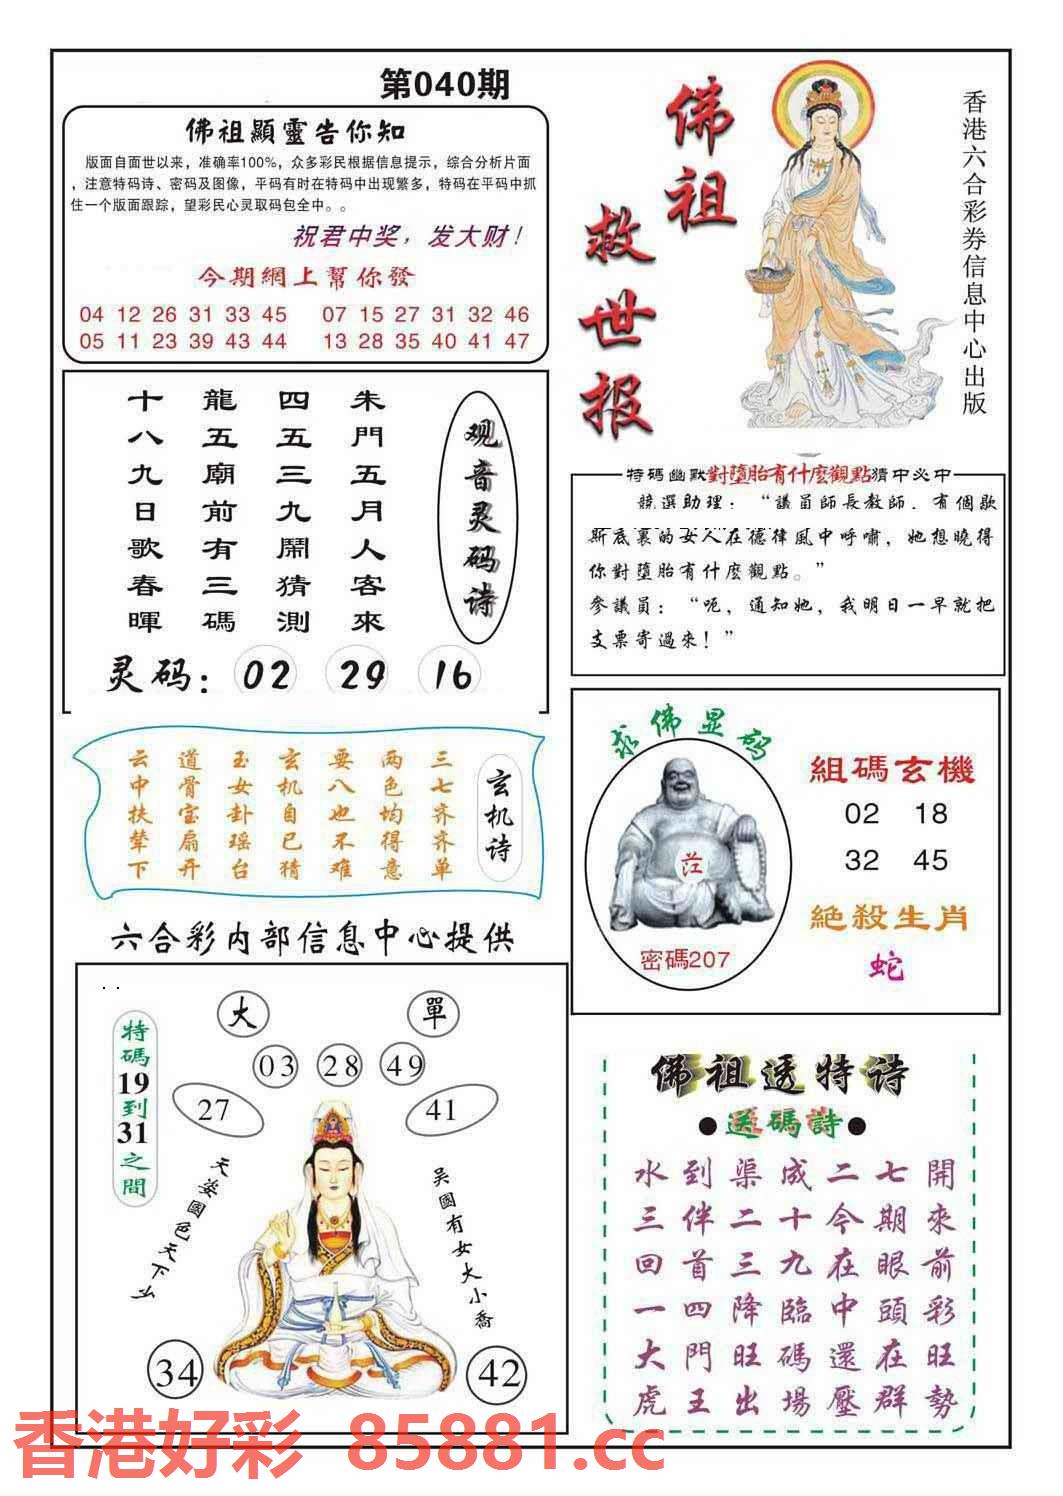 第040期
佛祖顯靈告你知
版面自面世以来，准确率100%，众多彩民根据信息提示，综合分析片面
，注意特码诗、密码及图像，平码有时在特码中出现繁多，特码在平码中抓
住一个版面跟踪，望彩民心灵取码包全中。。
祝君中奖，发大财！
今期網上幫你發
04 12 26 31 33 45 07 15 27 31 32 46
05 11 23 39 43 44 13 28 35 40 41 47
佛祖
救世报
香港六合彩券信息中心出版
观音灵码诗
朱門五月人客來
四五三九開猜測
龍五廟前有三碼
十八九日歌春暉
灵码：02 29 16
特碼幽默對墮胎有什麼觀點猜中必中
競選助理：“議員師長教師．有個歇
斯底裏的女人在德律風中呼嘯，她想曉得
你對墮胎有什麼觀點。”
參議員：“呃，通知她，我明日一早就把
支票寄過來！”
玄机诗
三七齐齐单
两色均得意
要八也不难
玄机自已猜
玉女卦瑶台
道骨宝扇开
云中扶辇下
求佛显码
密碼207
組碼玄機
02 18
32 45
絕殺生肖
蛇
六合彩内部信息中心提供
大
單
03 28 49
27
41
特碼19到31之間
天姿國色天下少
吴國有女大小喬
34
42
佛祖透特诗
●送碼詩●
水到渠成二七開
三伴二十今期來
回首三九在眼前
一四降臨中頭彩
大門旺碼還在旺
虎王出場壓群勢
香港好彩 85881.cc